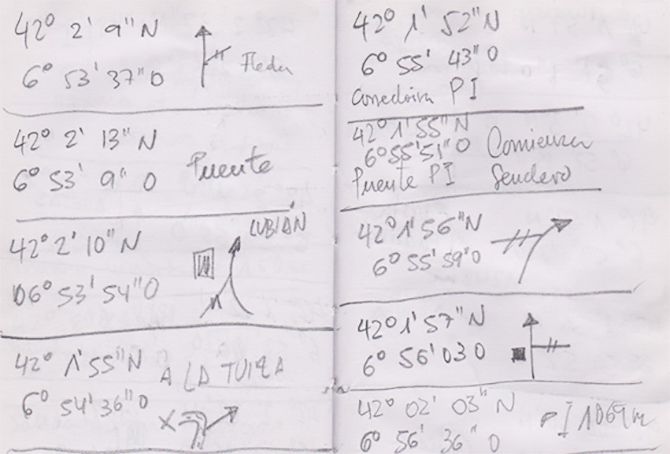 42° 2' 9" N
6° 53' 37" O
Flecha
42° 2' 13" N
6° 53' 9" O
Puente
LUBIÁN
42° 2' 10" N
06° 53' 54" O
42° 1' 55" N
6° 54' 36" O
A LA TUIZA
42° 1' 52" N
6° 55' 43" O
PI
42° 1' 55" N
6° 55' 51" O
Puente PI
Comienza
Sendero
42° 1' 56" N
6° 55' 59" O
42° 1' 57" N
6° 56' 03 O
42° 02' 03" N
6° 56' 36" O
PI 1069 m